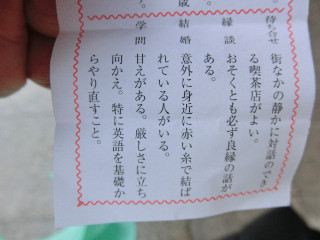 待ち合せ
街なかの静かに対話のでき
る喫茶店がよい。
縁談
おそくとも必ず良縁の話が
ある。
結婚
意外に身近に赤い糸で結ば
れている人がいる。
学問
甘えがある。厳しさに立ち
向かえ。特に英語を基礎か
らやり直すこと。